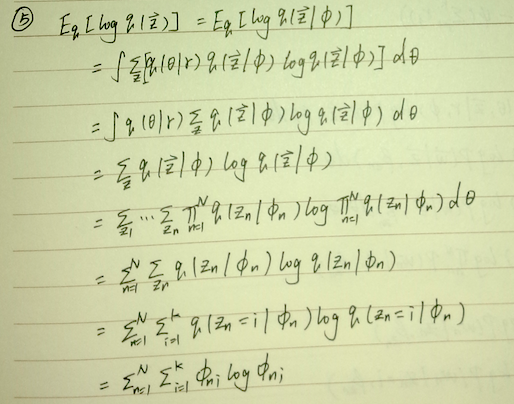 ⑤ Eq[log q(z⃗)] = Eq[log q(z⃗|ϕ)]
= ∫ Σ_z [q(θ|r) q(z⃗|ϕ) log q(z⃗|ϕ)] dθ
= ∫ q(θ|r) Σ_z q(z⃗|ϕ) log q(z⃗|ϕ) dθ
= Σ_z q(z⃗|ϕ) log q(z⃗|ϕ)
= Σ_{z_1} ⋯ Σ_{z_n} ∏_{n=1}^N q(z_n|ϕ_n) log ∏_{n=1}^N q(z_n|ϕ_n) dθ
= Σ_{n=1}^N Σ_{z_n} q(z_n|ϕ_n) log q(z_n|ϕ_n)
= Σ_{n=1}^N Σ_{i=1}^k q(z_n=i|ϕ_n) log q(z_n=i|ϕ_n)
= Σ_{n=1}^N Σ_{i=1}^k ϕ_{ni} log ϕ_{ni}